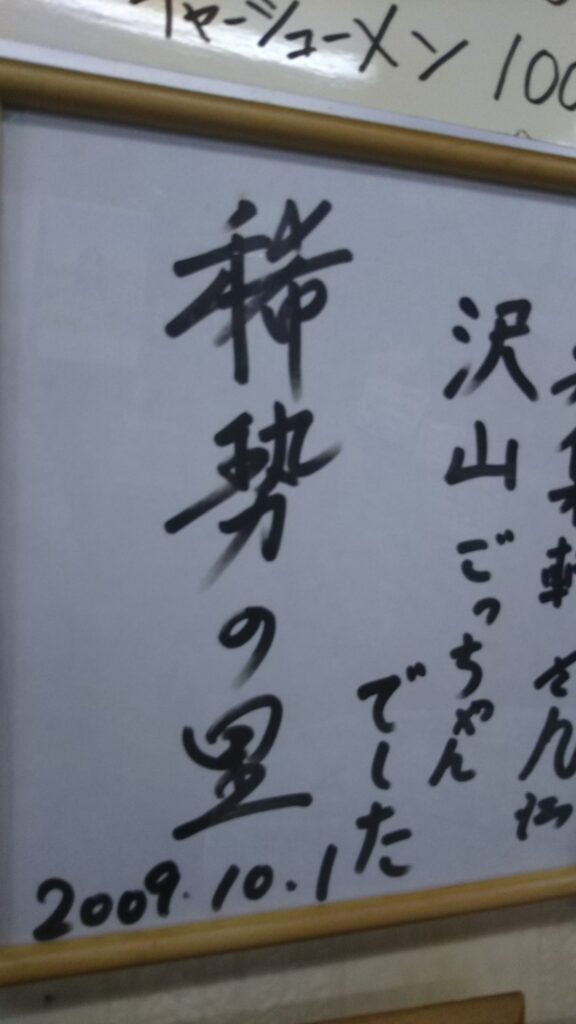 チャーシューメン 100
集軒さん江
沢山ごっちゃん
でした
稀勢の里
2009.10.1